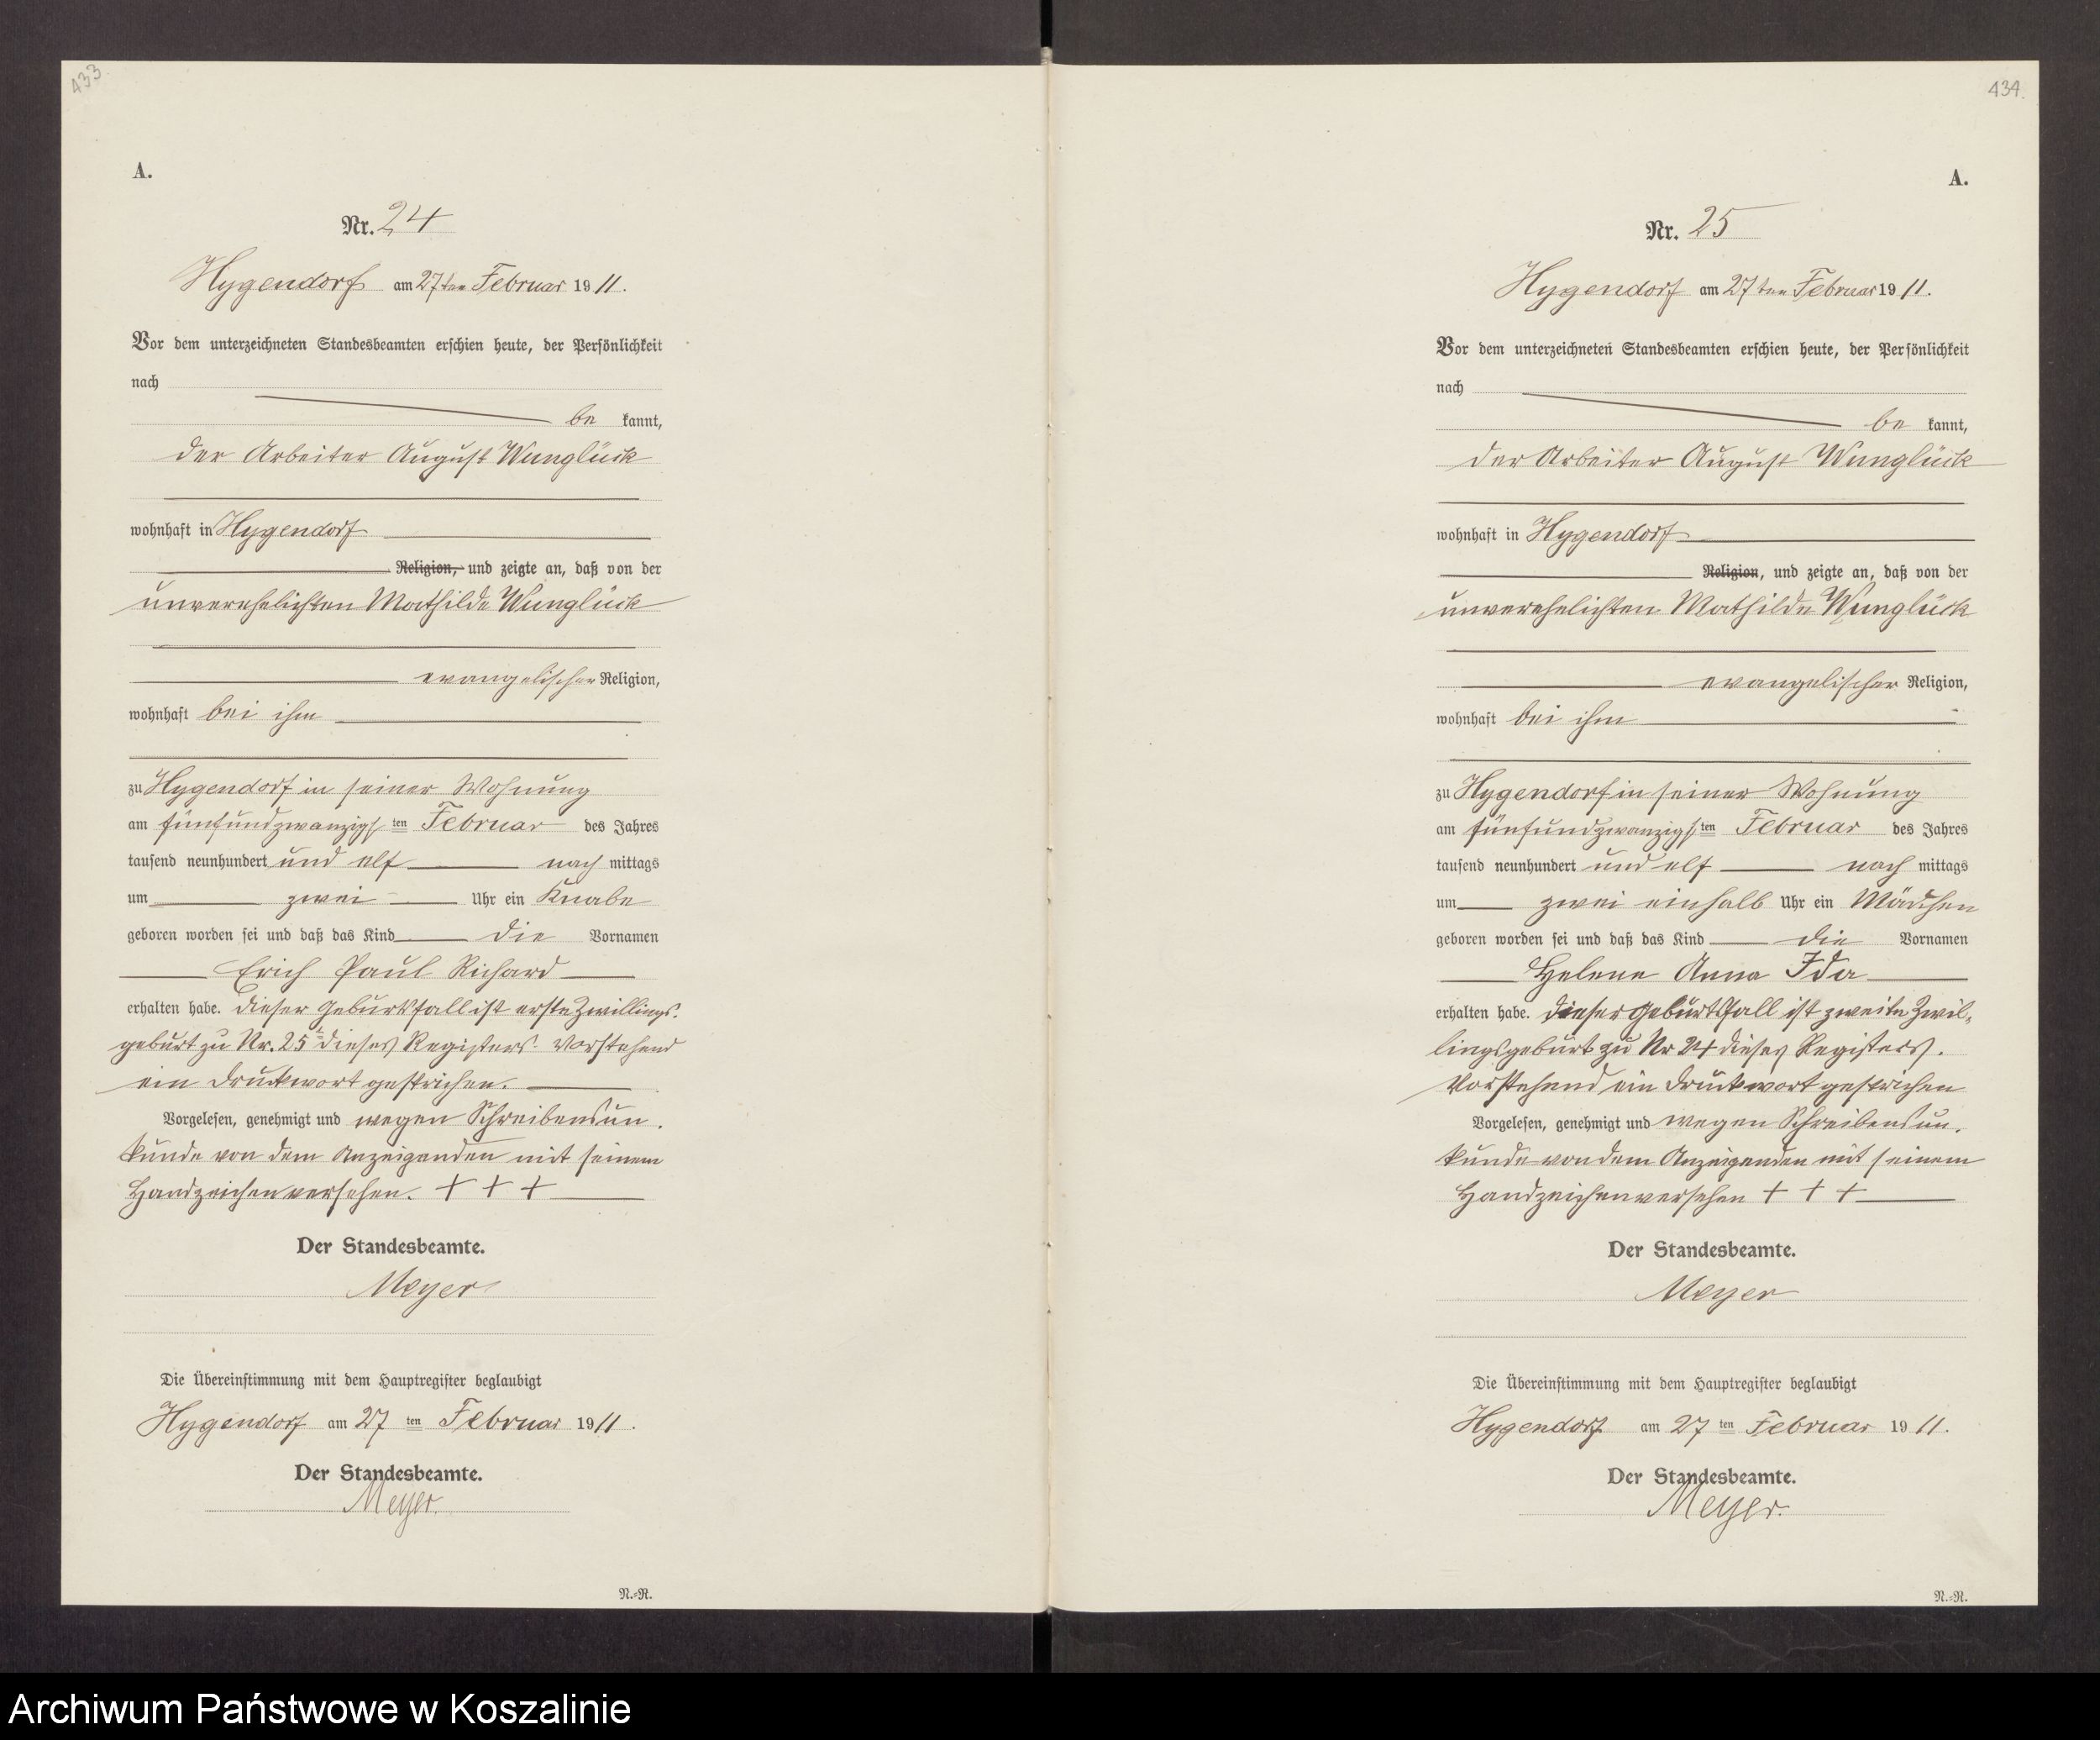 433
A.
Nr. 24
Hygendorf am 27ten Februar 1911.
Vor dem unterzeichneten Standesbeamten erschien heute, der Persönlichkeit
nach
be kannt,
der Arbeiter August Wunglück
wohnhaft in Hygendorf
Religion, und zeigte an, daß von der
unverehelichten Mathilde Wunglück
evangelischer Religion,
wohnhaft bei ihm
zu Hygendorf in seiner Wohnung
am fünfundzwanzigsten Februar des Jahres
tausend neunhundert und elf nach mittags
um zwei Uhr ein Knabe
geboren worden sei und daß das Kind die Vornamen
Erich Paul Richard
erhalten habe. Dieser Geburtsfall ist erste Zwillings-
geburt zu Nr. 25 dieses Registers. Vorstehend
ein Druckwort gestrichen.
Vorgelesen, genehmigt und wegen Schreibensun-
kunde von dem Anzeigenden mit seinem
Handzeichen versehen. + + +
Der Standesbeamte.
Meyer
Die Übereinstimmung mit dem Hauptregister beglaubigt
Hygendorf am 27 ten Februar 1911.
Der Standesbeamte.
Meyer.
N.-R.
434.
A.
Nr. 25
Hygendorf am 27ten Februar 1911.
Vor dem unterzeichneten Standesbeamten erschien heute, der Persönlichkeit
nach
be kannt,
der Arbeiter August Wunglück
wohnhaft in Hygendorf
Religion, und zeigte an, daß von der
unverehelichten Mathilde Wunglück
evangelischer Religion,
wohnhaft bei ihm
zu Hygendorf in seiner Wohnung
am fünfundzwanzigsten Februar des Jahres
tausend neunhundert und elf nach mittags
um zwei einhalb Uhr ein Mädchen
geboren worden sei und daß das Kind die Vornamen
Helene Anna Ida
erhalten habe. Dieser Geburtsfall ist zweite Zwil-
lingsgeburt zu Nr 24 dieses Registers.
Vorstehend ein Druckwort gestrichen
Vorgelesen, genehmigt und wegen Schreibensun-
kunde von dem Anzeigenden mit seinem
Handzeichen versehen + + +
Der Standesbeamte.
Meyer
Die Übereinstimmung mit dem Hauptregister beglaubigt
Hygendorf am 27 ten Februar 1911.
Der Standesbeamte.
Meyer.
N.-R.
Archiwum Państwowe w Koszalinie